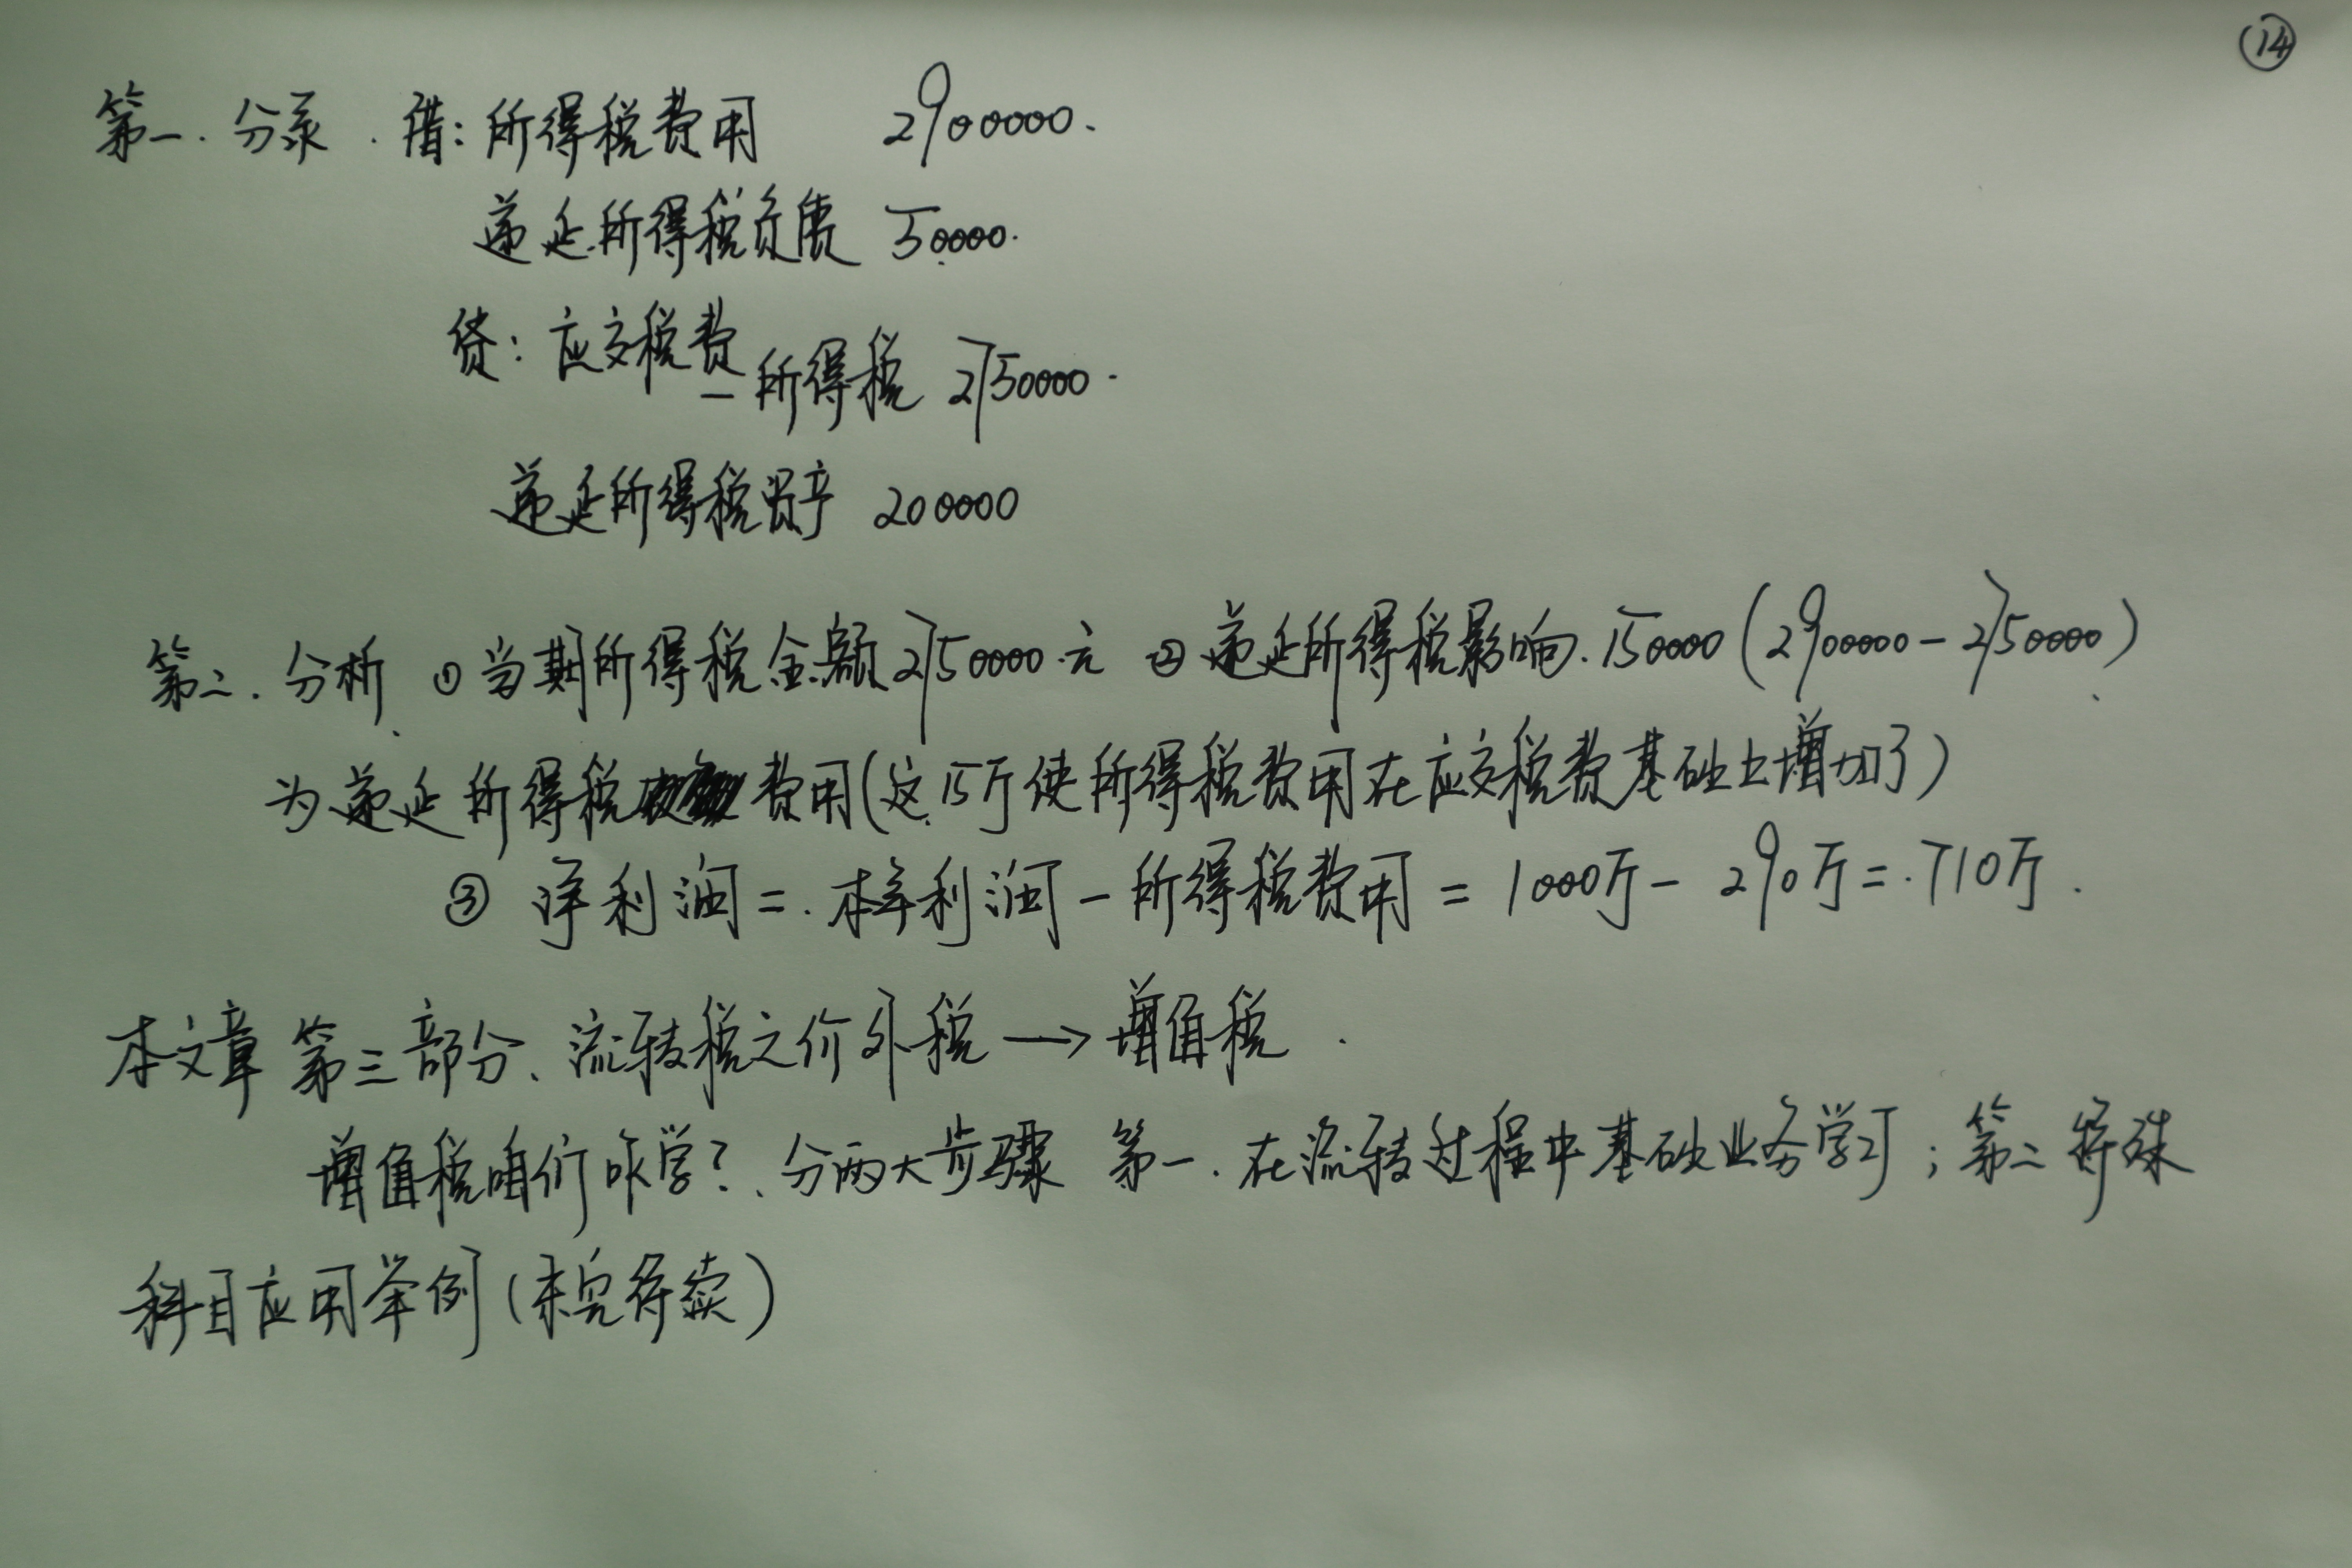 ⑭
第一.分录.借:所得税费用 2900000.
递延所得税负债 50000.
贷:应交税费
—所得税 2750000.
递延所得税资产 200000
第二.分析.①当期所得税金额2750000.元 ②递延所得税影响.150000(2900000-2750000)
为递延所得税费用(这15万使所得税费用在应交税费基础上增加了)
③ 净利润=.本年利润-所得税费用=1000万-290万=.710万.
本文章第三部分、流转税之价外税→增值税.
增值税咱们咋学?.分两大步骤 第一.在流转过程中基础业务学习;第二特殊
科目应用举例(未完待续)